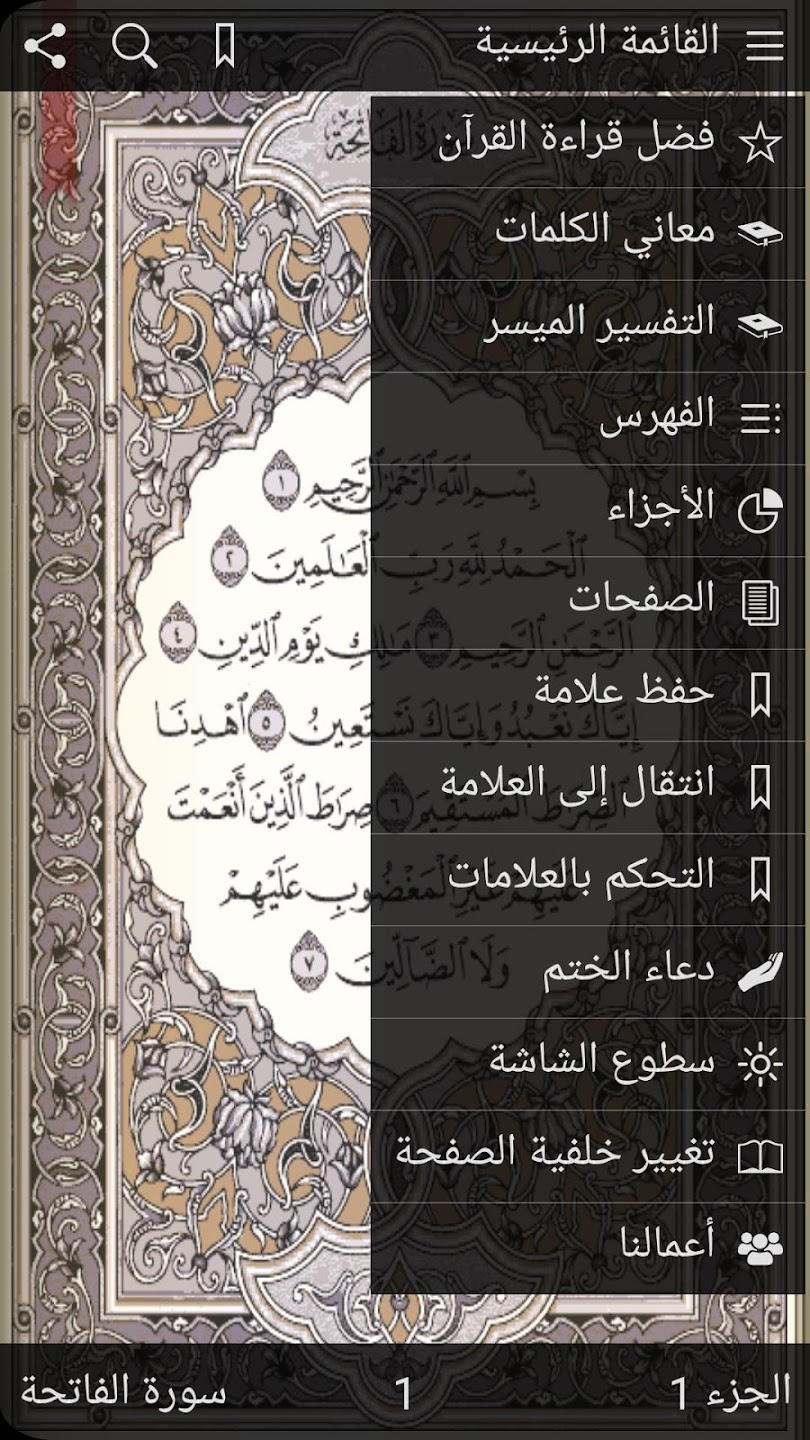 القائمة الرئيسية
سورة الفاتحة
فضل قراءة القرآن
معاني الكلمات
التفسير الميسر
الفهرس
الأجزاء
الصفحات
حفظ علامة
انتقال إلى العلامة
التحكم بالعلامات
دعاء الختم
سطوع الشاشة
تغيير خلفية الصفحة
أعمالنا
بِسْمِ ٱللَّهِ ٱلرَّحْمَٰنِ ٱلرَّحِيمِ ١
ٱلْحَمْدُ لِلَّهِ رَبِّ ٱلْعَٰلَمِينَ ٢
ٱلرَّحْمَٰنِ ٱلرَّحِيمِ ٣ مَٰلِكِ يَوْمِ ٱلدِّينِ ٤
إِيَّاكَ نَعْبُدُ وَإِيَّاكَ نَسْتَعِينُ ٥ ٱهْدِنَا
ٱلصِّرَٰطَ ٱلْمُسْتَقِيمَ ٦ صِرَٰطَ ٱلَّذِينَ أَنْعَمْتَ
عَلَيْهِمْ غَيْرِ ٱلْمَغْضُوبِ عَلَيْهِمْ
وَلَا ٱلضَّآلِّينَ ٧
الجزء 1
1
سورة الفاتحة